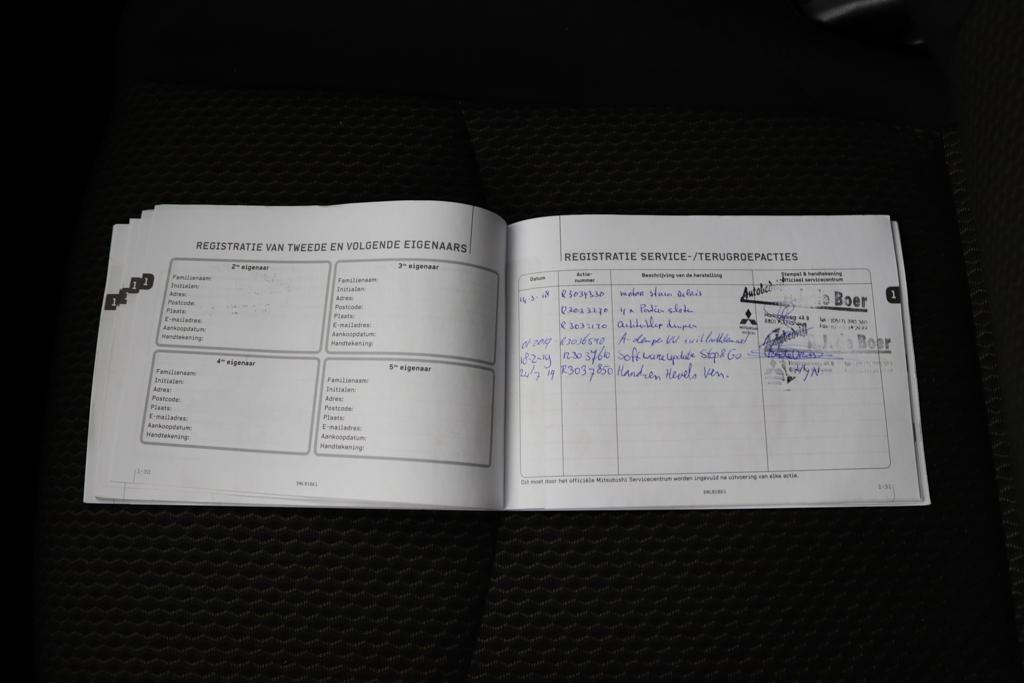 REGISTRATIE VAN TWEEDE EN VOLGENDE EIGENAARS
2de eigenaar
Familienaam:
Initialen:
Adres:
Postcode:
Plaats:
E-mailadres:
Aankoopdatum:
Handtekening:
3de eigenaar
Familienaam:
Initialen:
Adres:
Postcode:
Plaats:
E-mailadres:
Aankoopdatum:
Handtekening:
4de eigenaar
Familienaam:
Initialen:
Adres:
Postcode:
Plaats:
E-mailadres:
Aankoopdatum:
Handtekening:
5de eigenaar
Familienaam:
Initialen:
Adres:
Postcode:
Plaats:
E-mailadres:
Aankoopdatum:
Handtekening:
1-30
DNL818E1
1
REGISTRATIE SERVICE-/TERUGROEPACTIES
Datum Actie-nummer Beschrijving van de herstelling Stempel & handtekening officieel servicecentrum
R3034330 motor stuur Relais
R3033270 4x
R3033170 Achterklep demper
R3036540
18-2-19 R3037610 Software update Stop & Go
24/7 19 R3037850 Handrem Hevels Ven.
Autobedrijf
de Boer
Autobedrijf
A.J. de Boer
Dit moet door het officiële Mitsubishi Servicecentrum worden ingevuld na uitvoering van elke actie.
DNL818E1
1-31
1